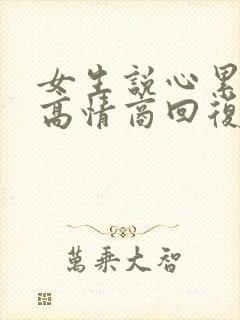 女生説心累
高情商回復
萬乘大智